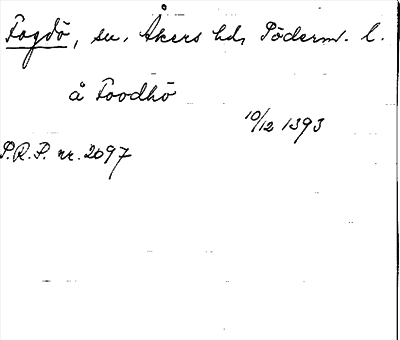 Fogdö, sn, Åkers hd, Söderm. l.
å Foodhö
10/12 1393
S.R.P. nr. 2097